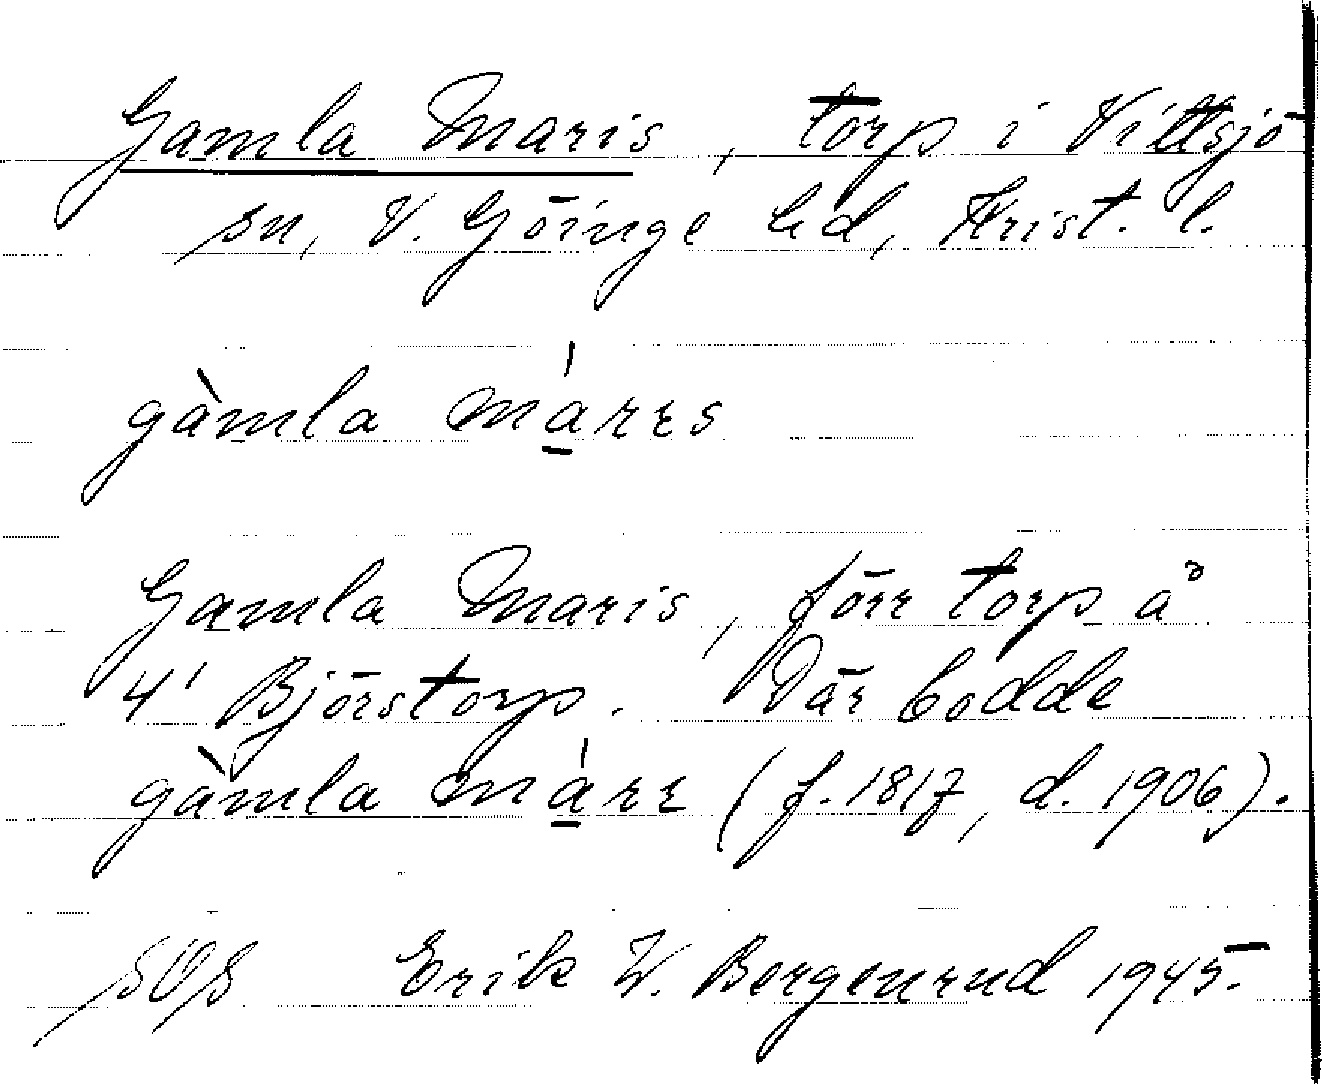 Gamla Maris, torp i Vittsjö
sn, V. Göinge hd, Krist. l.
gàmla má̱rɛs
Gamla Maris, förr torp å
4¹ Björstorp. Där bodde
gàmla má̱rɛ (f. 1817, d. 1906).
Erik W. Bergenrud 1945.